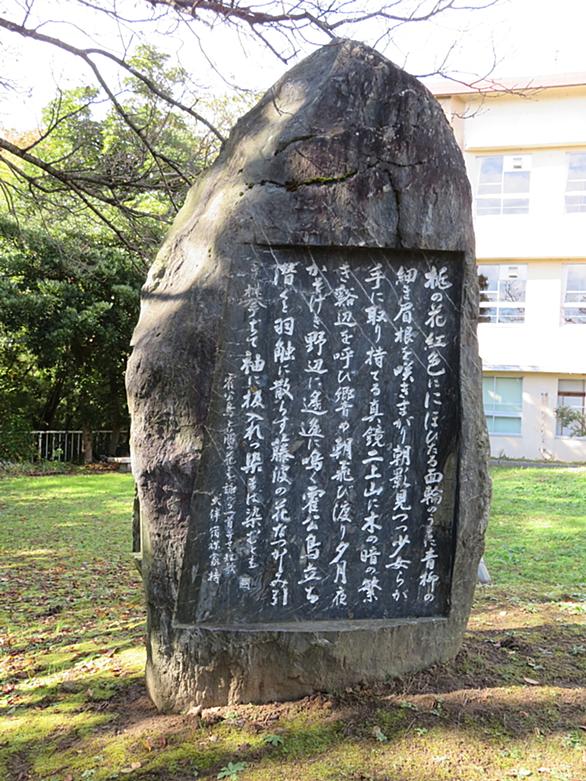 桃の花紅色ににほひたる面輪のうち尓青柳の
細き眉根を咲きまがり朝影見つつ少女らが
手に取り持てる真鏡二上山に木の暗の繁
き谿辺を呼び響め朝飛び渡り夕月夜
かそけき野辺に遥遥に鳴く霍公鳥立ち
潜くと羽触に散らす藤波の花なつかしみ引
き攀ぢて袖に扱入れつ染まば染むとも
霍公鳥と藤の花とを詠める一首并せて短歌
大伴宿祢家持